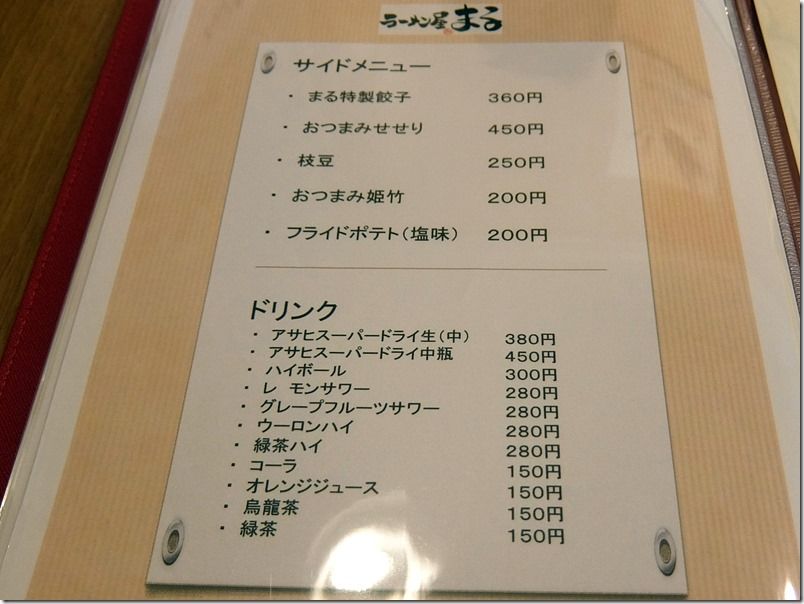 ラーメン屋 まる
サイドメニュー
・ まる特製餃子 360円
・ おつまみせせり 450円
・ 枝豆 250円
・ おつまみ姫竹 200円
・ フライドポテト(塩味) 200円
ドリンク
・ アサヒスーパードライ生(中) 380円
・ アサヒスーパードライ中瓶 450円
・ ハイボール 300円
・ レ モンサワー 280円
・ グレープフルーツサワー 280円
・ ウーロンハイ 280円
・ 緑茶ハイ 280円
・ コーラ 150円
・ オレンジジュース 150円
・ 烏龍茶 150円
・ 緑茶 150円